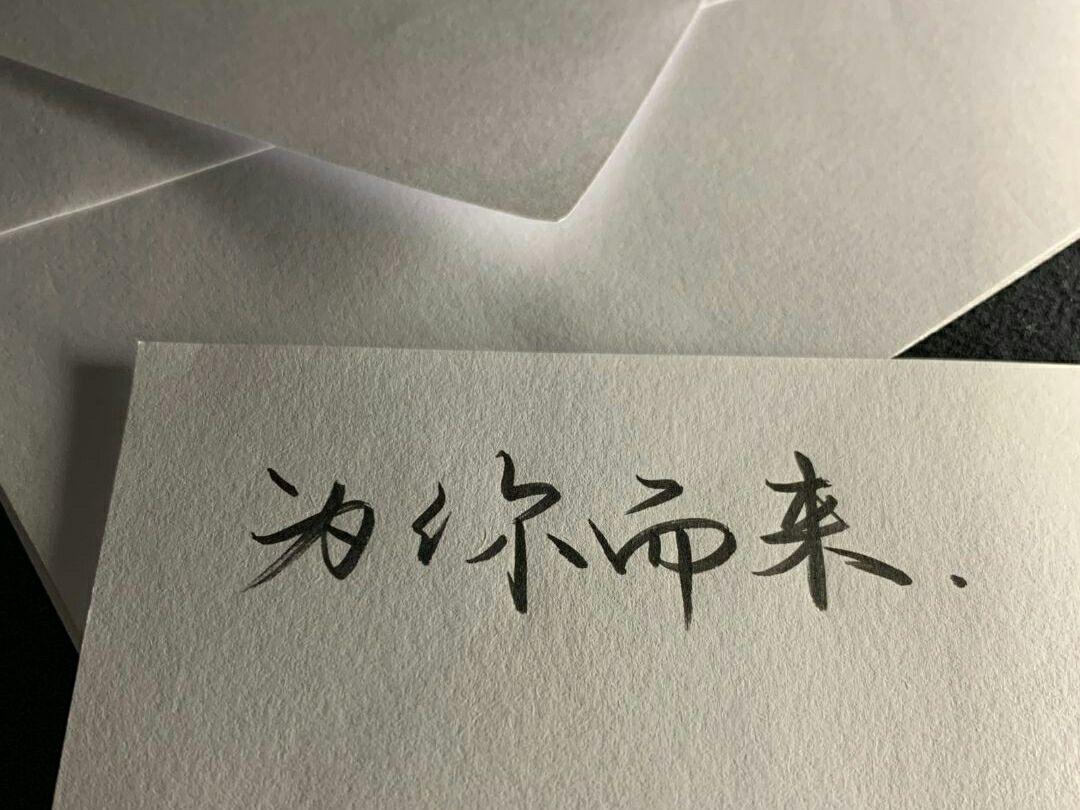 为你而来.